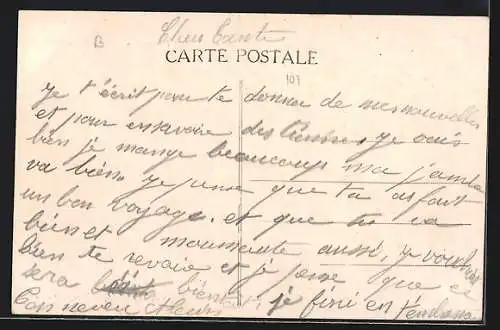 B
Chere Tante
CARTE POSTALE
107
Je t'écrit pour te donner de mes nouvelles
et pour ensavoir des tiennes, je vais
bien je mange beaucoup ma jambe
va bien. Je pense que tu as fait
un bon voyage. et que tu va
bien et aussi, je voudrais
bien te revoir et je pense que ce
sera bientot, je fini en t'embrassant
Ton neveu